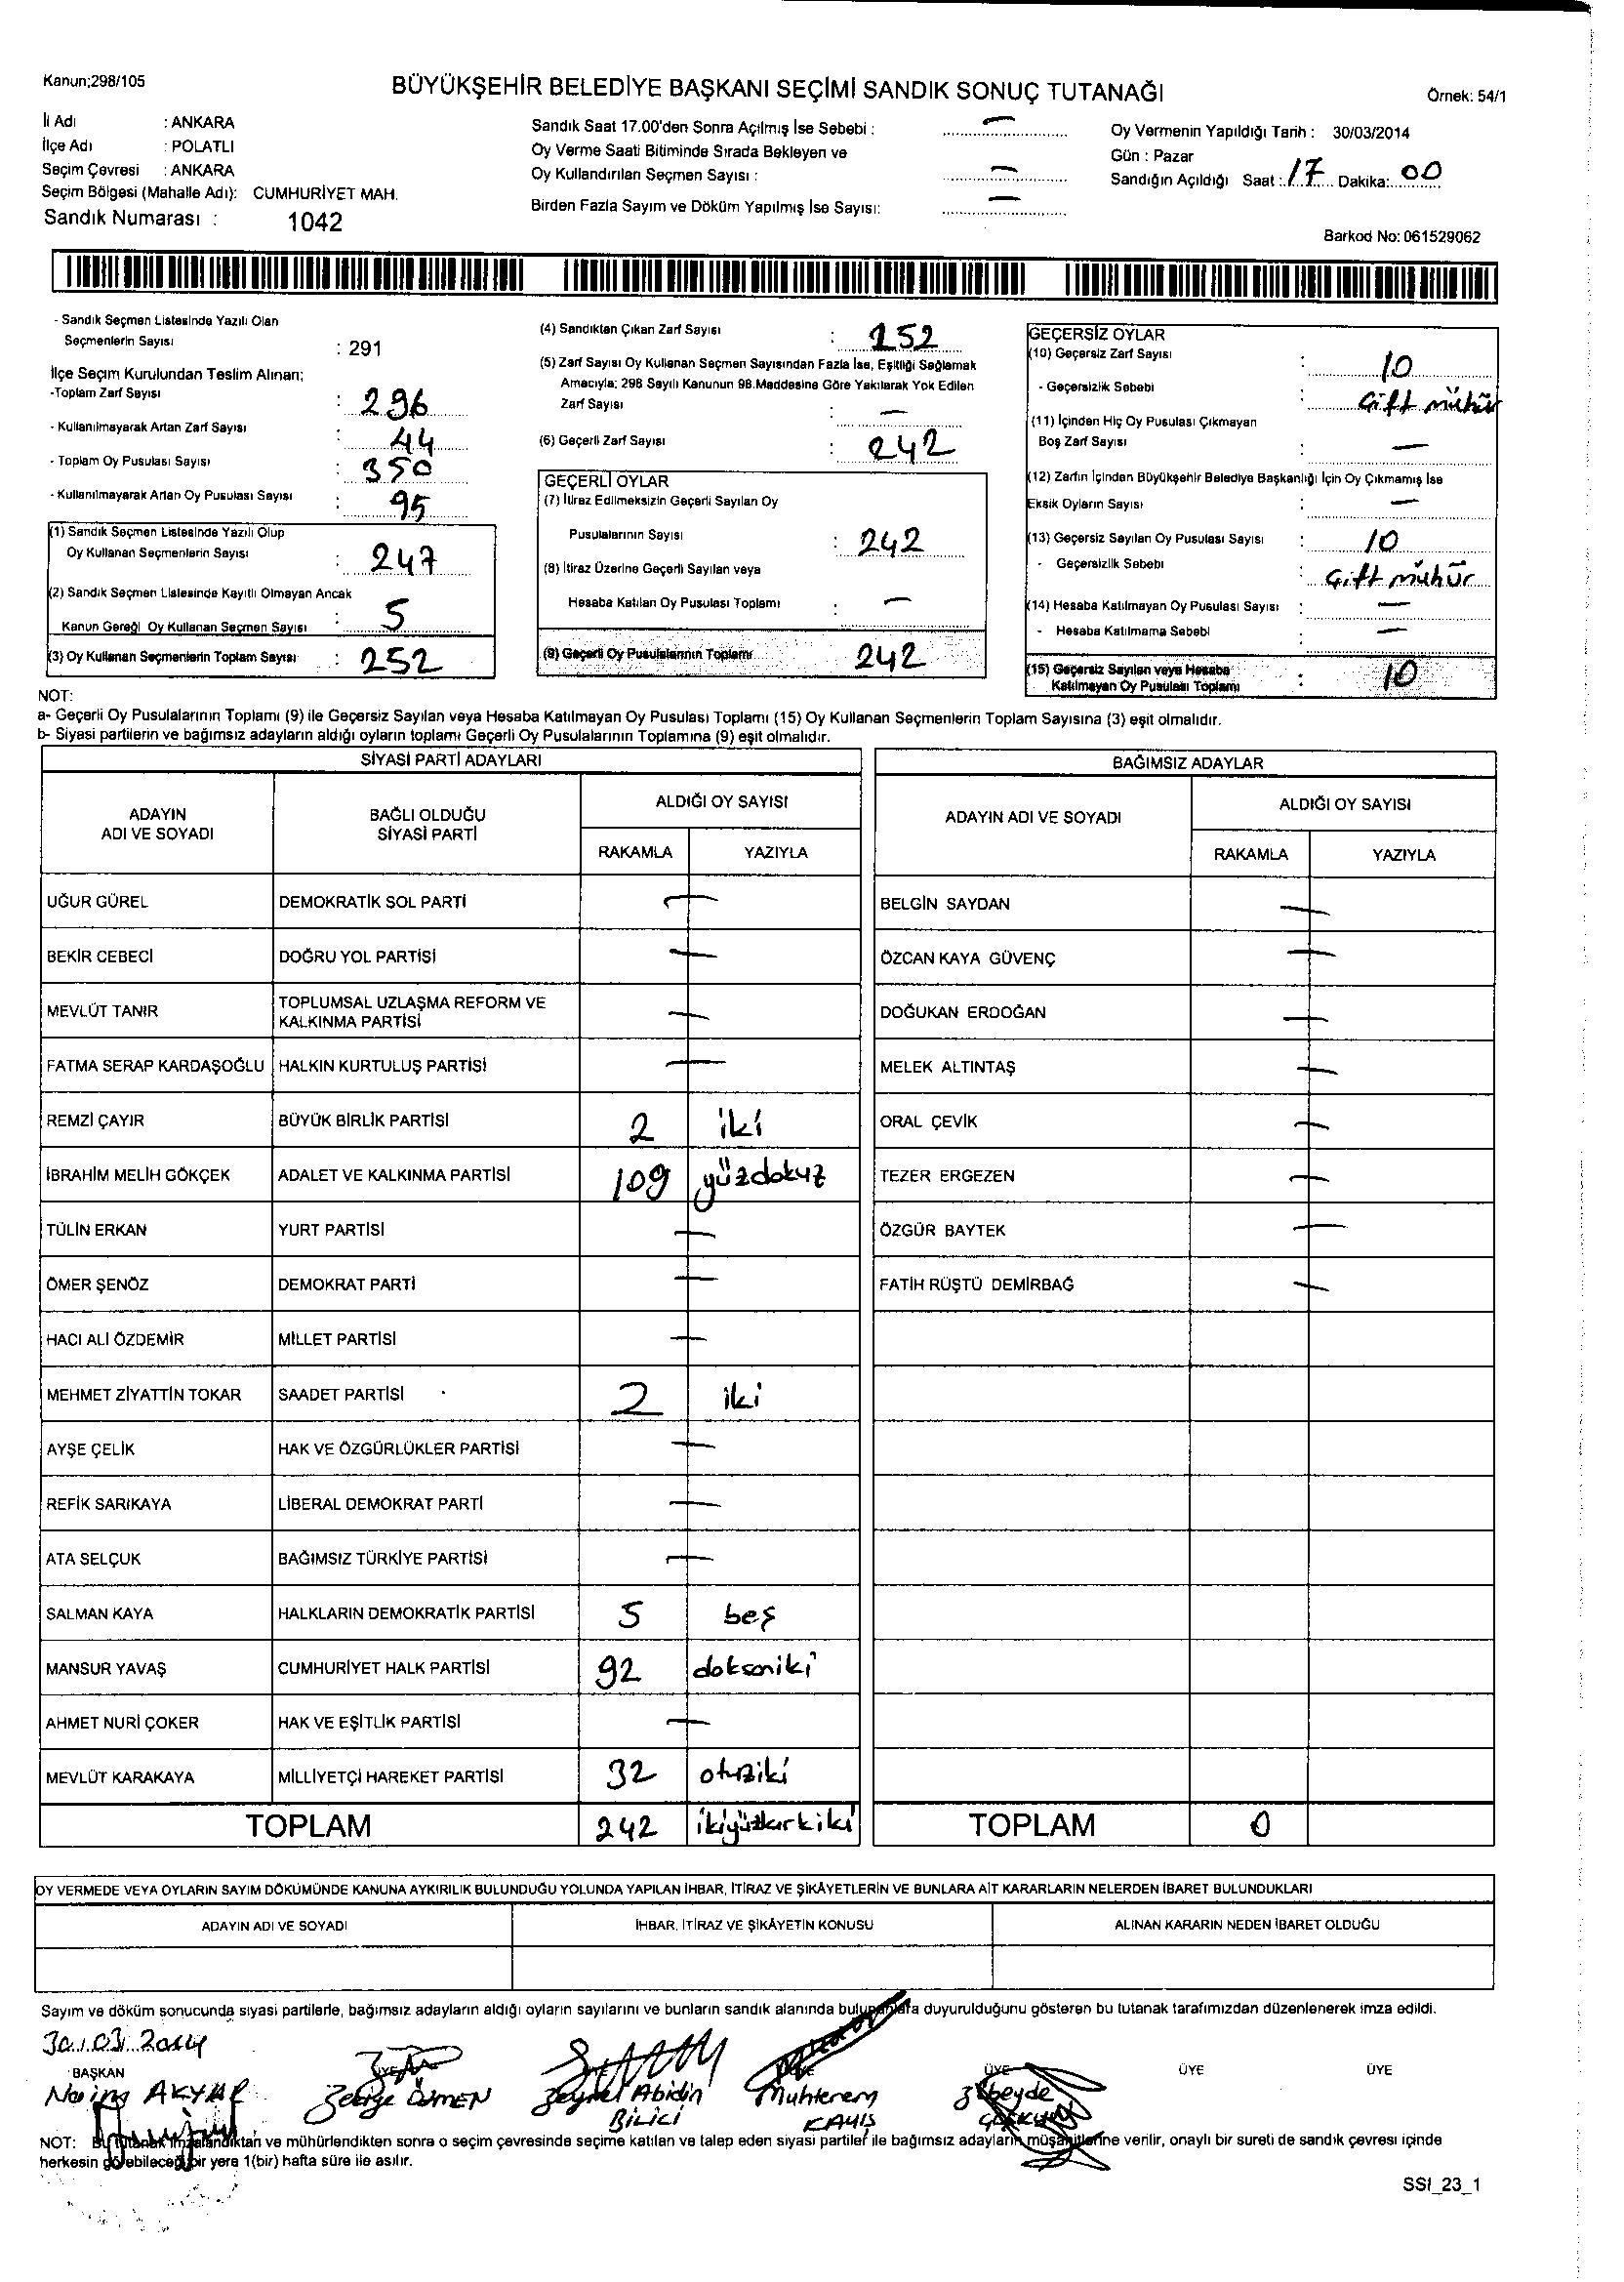 Kanun;298/105
BÜYÜKŞEHİR BELEDİYE BAŞKANI SEÇİMİ SANDIK SONUÇ TUTANAĞI
Örnek: 54/1
İli Adı : ANKARA
İlçe Adı : POLATLI
Seçim Çevresi : ANKARA
Seçim Bölgesi (Mahalle Adı): CUMHURİYET MAH.
Sandık Numarası : 1042
Sandık Saat 17.00'den Sonra Açılmış İse Sebebi : —
Oy Verme Saati Bitiminde Sırada Bekleyen ve
Oy Kullandırılan Seçmen Sayısı : —
Birden Fazla Sayım ve Döküm Yapılmış İse Sayısı: —
Oy Vermenin Yapıldığı Tarih : 30/03/2014
Gün : Pazar
Sandığın Açıldığı Saat : 17 Dakika: 00
Barkod No: 061529062
- Sandık Seçmen Listesinde Yazılı Olan
Seçmenlerin Sayısı : 291
İlçe Seçim Kurulundan Teslim Alınan;
-Toplam Zarf Sayısı : 296
- Kullanılmayarak Artan Zarf Sayısı : 44
- Toplam Oy Pusulası Sayısı : 350
- Kullanılmayarak Artan Oy Pusulası Sayısı : 95
(1) Sandık Seçmen Listesinde Yazılı Olup
Oy Kullanan Seçmenlerin Sayısı : 247
(2) Sandık Seçmen Listesinde Kayıtlı Olmayan Ancak
Kanun Gereği Oy Kullanan Seçmen Sayısı : 5
(3) Oy Kullanan Seçmenlerin Toplam Sayısı : 252
(4) Sandıktan Çıkan Zarf Sayısı : 252
(5) Zarf Sayısı Oy Kullanan Seçmen Sayısından Fazla İse, Eşitliği Sağlamak
Amacıyla; 298 Sayılı Kanunun 98.Maddesine Göre Yakılarak Yok Edilen
Zarf Sayısı : —
(6) Geçerli Zarf Sayısı : 242
GEÇERLİ OYLAR
(7) İtiraz Edilmeksizin Geçerli Sayılan Oy
Pusulalarının Sayısı : 242
(8) İtiraz Üzerine Geçerli Sayılan veya
Hesaba Katılan Oy Pusulası Toplamı : —
(9) Geçerli Oy Pusulalarının Toplamı 242
GEÇERSİZ OYLAR
(10) Geçersiz Zarf Sayısı : 10
- Geçersizlik Sebebi : Çift mühür
(11) İçinden Hiç Oy Pusulası Çıkmayan
Boş Zarf Sayısı : —
(12) Zarfın İçinden Büyükşehir Belediye Başkanlığı İçin Oy Çıkmamış İse
Eksik Oyların Sayısı : —
(13) Geçersiz Sayılan Oy Pusulası Sayısı : 10
- Geçersizlik Sebebi : Çift mühür
(14) Hesaba Katılmayan Oy Pusulası Sayısı : —
- Hesaba Katılmama Sebebi : —
(15) Geçersiz Sayılan veya Hesaba
Katılmayan Oy Pusulası Toplamı : 10
NOT:
a- Geçerli Oy Pusulalarının Toplamı (9) ile Geçersiz Sayılan veya Hesaba Katılmayan Oy Pusulası Toplamı (15) Oy Kullanan Seçmenlerin Toplam Sayısına (3) eşit olmalıdır.
b- Siyasi partilerin ve bağımsız adayların aldığı oyların toplamı Geçerli Oy Pusulalarının Toplamına (9) eşit olmalıdır.
SİYASİ PARTİ ADAYLARI
ADAYIN ADI VE SOYADI BAĞLI OLDUĞU SİYASİ PARTİ ALDIĞI OY SAYISI
RAKAMLA YAZIYLA
UĞUR GÜREL DEMOKRATİK SOL PARTİ —
BEKİR CEBECİ DOĞRU YOL PARTİSİ —
MEVLÜT TANIR TOPLUMSAL UZLAŞMA REFORM VE KALKINMA PARTİSİ —
FATMA SERAP KARDAŞOĞLU HALKIN KURTULUŞ PARTİSİ —
REMZİ ÇAYIR BÜYÜK BİRLİK PARTİSİ 2 iki
İBRAHİM MELİH GÖKÇEK ADALET VE KALKINMA PARTİSİ 109 yüzdokuz
TÜLİN ERKAN YURT PARTİSİ —
ÖMER ŞENÖZ DEMOKRAT PARTİ —
HACI ALİ ÖZDEMİR MİLLET PARTİSİ —
MEHMET ZİYATTİN TOKAR SAADET PARTİSİ 2 iki
AYŞE ÇELİK HAK VE ÖZGÜRLÜKLER PARTİSİ —
REFİK SARIKAYA LİBERAL DEMOKRAT PARTİ —
ATA SELÇUK BAĞIMSIZ TÜRKİYE PARTİSİ —
SALMAN KAYA HALKLARIN DEMOKRATİK PARTİSİ 5 beş
MANSUR YAVAŞ CUMHURİYET HALK PARTİSİ 92 doksaniki
AHMET NURİ ÇOKER HAK VE EŞİTLİK PARTİSİ —
MEVLÜT KARAKAYA MİLLİYETÇİ HAREKET PARTİSİ 32 otuziki
TOPLAM 242 ikiyüzkırkiki
BAĞIMSIZ ADAYLAR
ADAYIN ADI VE SOYADI ALDIĞI OY SAYISI
RAKAMLA YAZIYLA
BELGİN SAYDAN —
ÖZCAN KAYA GÜVENÇ —
DOĞUKAN ERDOĞAN —
MELEK ALTINTAŞ —
ORAL ÇEVİK —
TEZER ERGEZEN —
ÖZGÜR BAYTEK —
FATİH RÜŞTÜ DEMİRBAĞ —
TOPLAM 0
OY VERMEDE VEYA OYLARIN SAYIM DÖKÜMÜNDE KANUNA AYKIRILIK BULUNDUĞU YOLUNDA YAPILAN İHBAR, İTİRAZ VE ŞİKÂYETLERİN VE BUNLARA AİT KARARLARIN NELERDEN İBARET BULUNDUKLARI
ADAYIN ADI VE SOYADI İHBAR, İTİRAZ VE ŞİKÂYETİN KONUSU ALINAN KARARIN NEDEN İBARET OLDUĞU
Sayım ve döküm sonucunda siyasi partilerle, bağımsız adayların aldığı oyların sayılarını ve bunların sandık alanında bulunanlara duyurulduğunu gösteren bu tutanak tarafımızdan düzenlenerek imza edildi.
30.03.2014
BAŞKAN ÜYE ÜYE ÜYE
Zeynel Abidin Muhterem Zübeyde
BİLİCİ KAYIŞ
NOT: Bu tutanak imzalandıktan ve mühürlendikten sonra o seçim çevresinde seçime katılan ve talep eden siyasi partiler ile bağımsız adayların müşahitlerine verilir, onaylı bir sureti de sandık çevresi içinde
herkesin görebileceği bir yere 1(bir) hafta süre ile asılır.
SSI_23_1